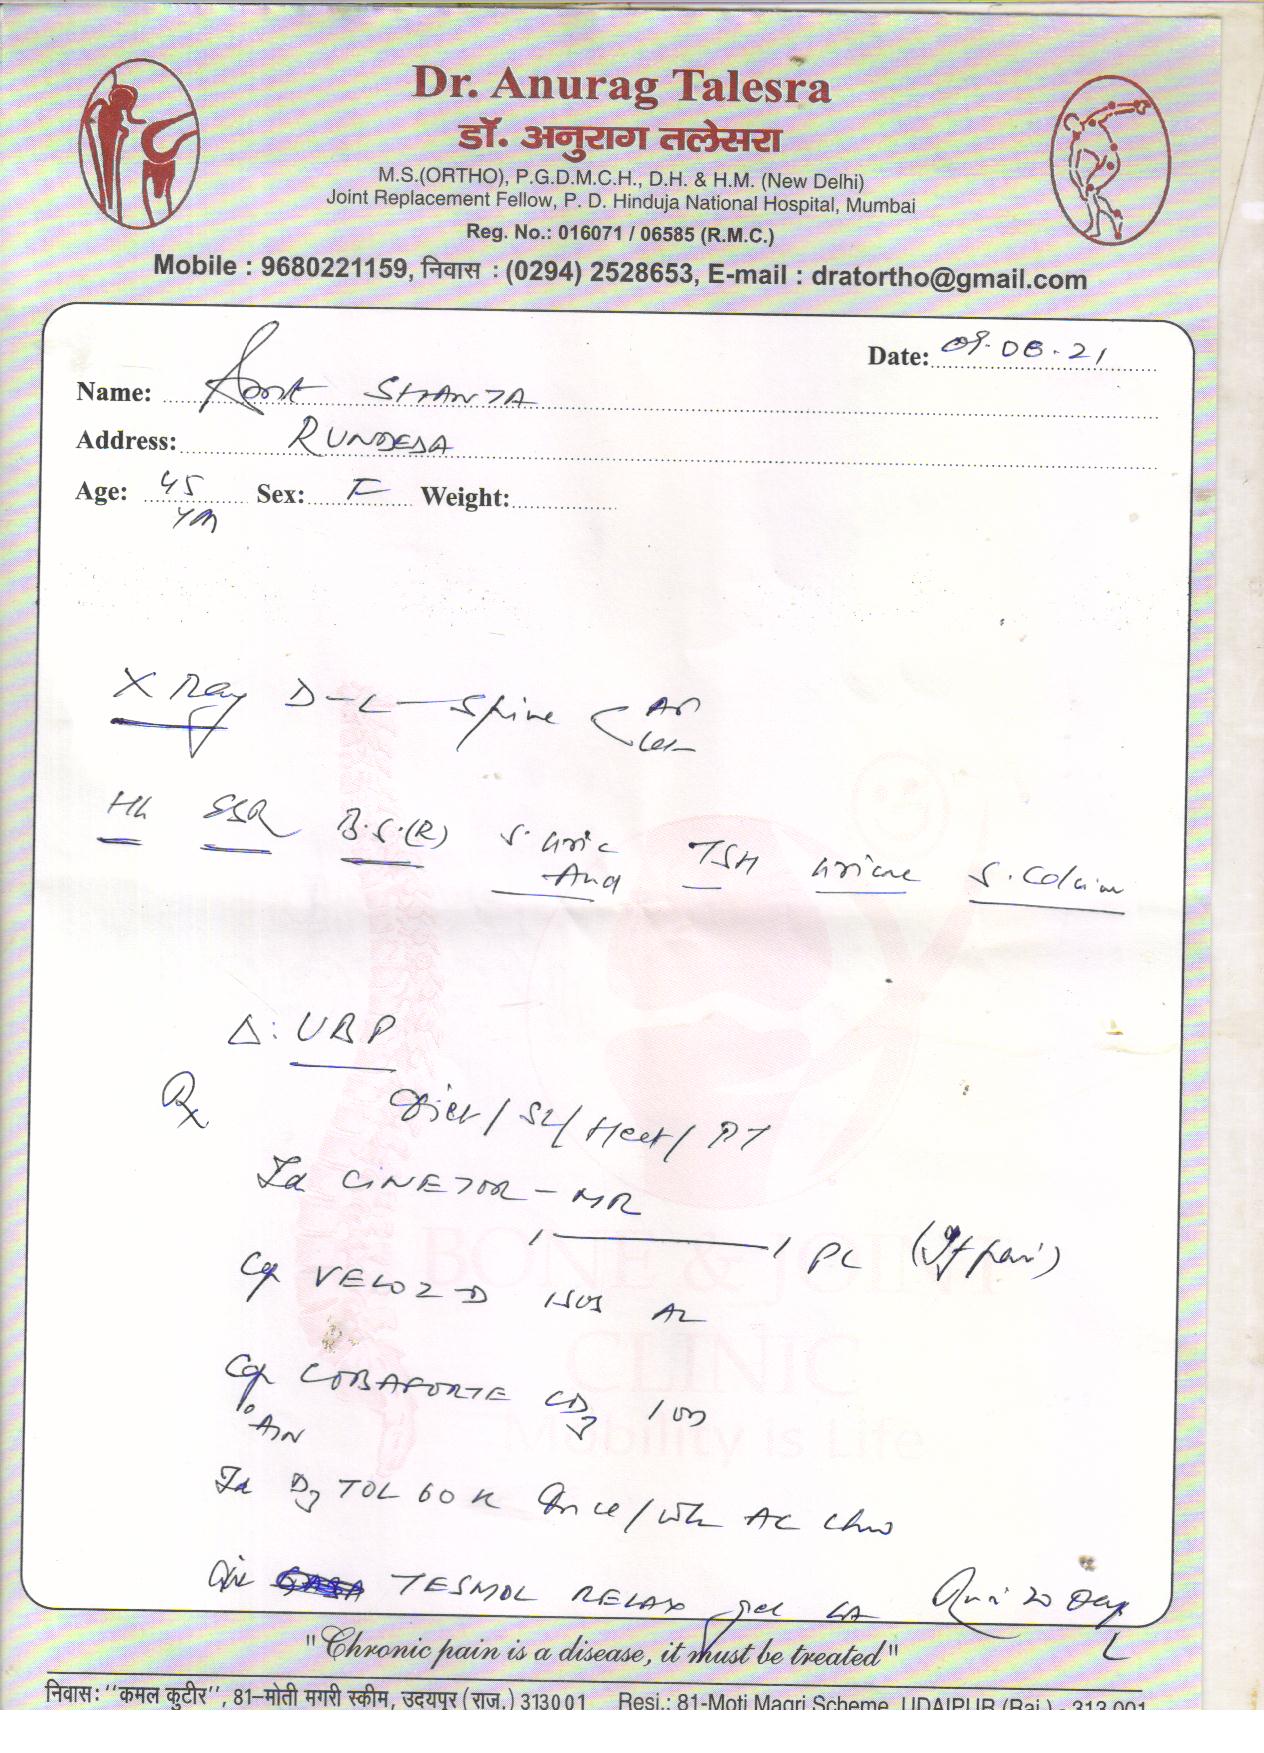 Dr. Anurag Talesra
डॉ. अनुराग तलेसरा
M.S.(ORTHO), P.G.D.M.C.H., D.H. & H.M. (New Delhi)
Joint Replacement Fellow, P. D. Hinduja National Hospital, Mumbai
Reg. No.: 016071 / 06585 (R.M.C.)
Mobile : 9680221159, निवास : (0294) 2528653, E-mail : dratortho@gmail.com
Date: 09.08.21
Name: SHANTA
Address: RUNDEDA
Age: 45 Sex: F Weight:
X Ray D-L-Spine AP
Hb ESR B.S.(R) S. Uric
Acid TSH Urine S. Calcium
Δ: UBP
Rx
Diet / SL / Heat / PT
CINETOR-MR
1 1 PC (If pain)
Cap VELOZ-D 1 OD AC
Cap COBAFORTE CD3 1 OD
D3 TOL 60K Once / Wk
TESMOL RELAX gel LA 20 Days
BONE & JOINT
CLINIC
Mobility is Life
"Chronic pain is a disease, it must be treated"
निवास: "कमल कुटीर", 81-मोती मगरी स्कीम, उदयपुर (राज.) 313001 Resi.: 81-Moti Magri Scheme, UDAIPUR (Raj.) - 313 001